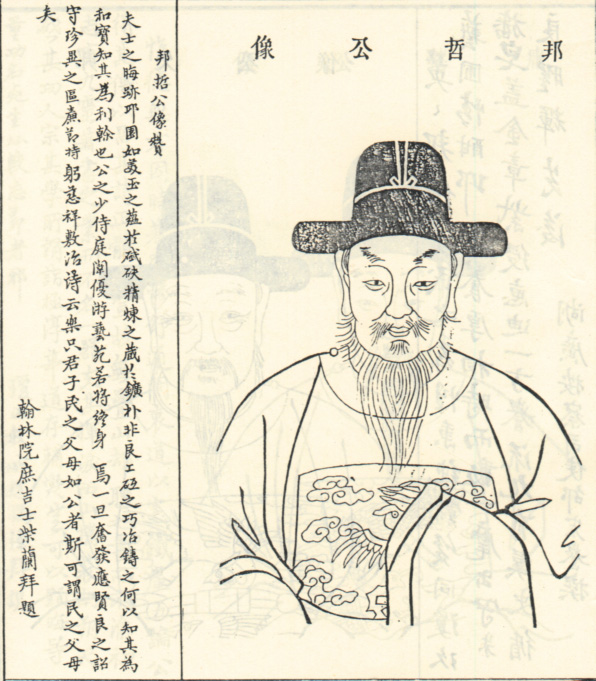 邦哲公像
邦哲公像贊
夫士之晦跡邱園如美玉之蘊於碔砆精煉之藏於鑛朴非良工砥之巧冶鑄之何以知其為
和寶知其為利榦也公之少侍庭闈優游藝苑若將終身焉一旦奮發應賢良之詔
守珍異之區廉節持躬慈祥敷治詩云樂只君子民之父母如公者斯可謂民之父母
矣
翰林院庶吉士柴蘭拜題